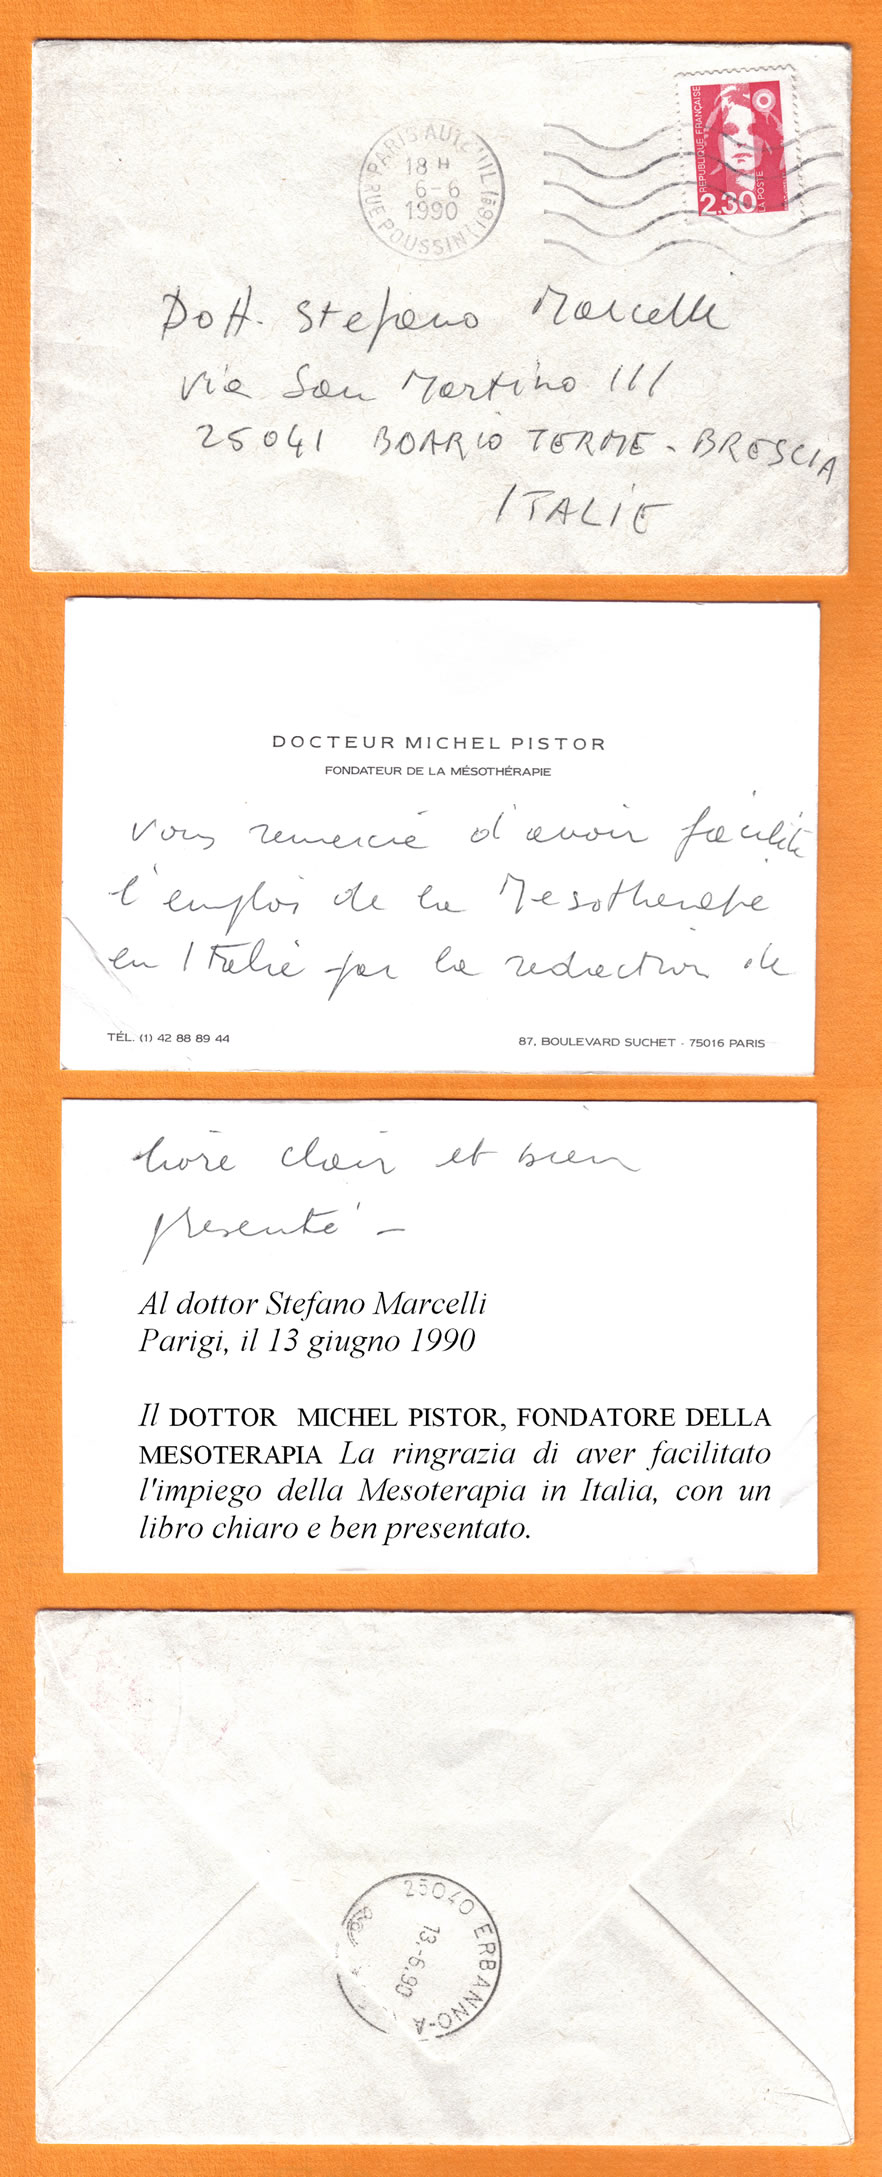 PARIS AUTEUIL (16e)
18 H
6-6
1990
RUE POUSSIN
REPUBLIQUE FRANÇAISE
2,30
LA POSTE
Dott. Stefano Marcelli
Via San Martino 111
25041 BOARIO TERME - BRESCIA
ITALIE
DOCTEUR MICHEL PISTOR
FONDATEUR DE LA MÉSOTHÉRAPIE
vous remercie d'avoir facilité
l'emploi de la Mesotherapie
en Italie par la redaction de
TÉL. (1) 42 88 89 44
87, BOULEVARD SUCHET - 75016 PARIS
livre clair et bien
presenté -
Al dottor Stefano Marcelli
Parigi, il 13 giugno 1990
Il DOTTOR MICHEL PISTOR, FONDATORE DELLA
MESOTERAPIA La ringrazia di aver facilitato
l'impiego della Mesoterapia in Italia, con un
libro chiaro e ben presentato.
25040 ERBANNO-A
13.-6.90